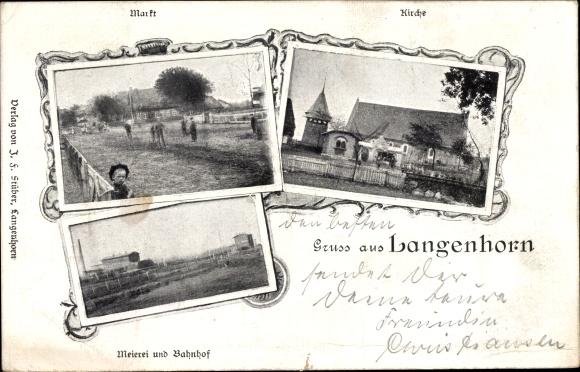 Markt
Kirche
Verlag von J. F. Stüber, Langenhorn
den besten
Gruss aus Langenhorn
sendet Dir
Deine teure
Freundin
Meierei und Bahnhof